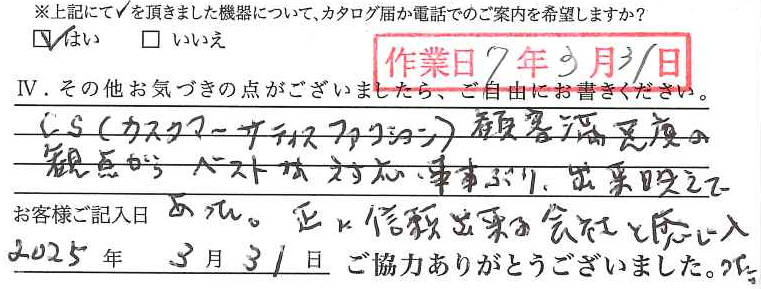 ※上記にて✓を頂きました機器について、カタログ届か電話でのご案内を希望しますか?
☑ はい □ いいえ
作業日 7年3月31日
Ⅳ．その他お気づきの点がございましたら、ご自由にお書きください。
CS(カスタマーサティスファクション) 顧客満足度の
観点から ベストな 対応、仕事ぶり、出来映えで
お客様ご記入日 あった。正に信頼出来る会社と感じ入
2025年 3月31日 ご協力ありがとうございました。った。